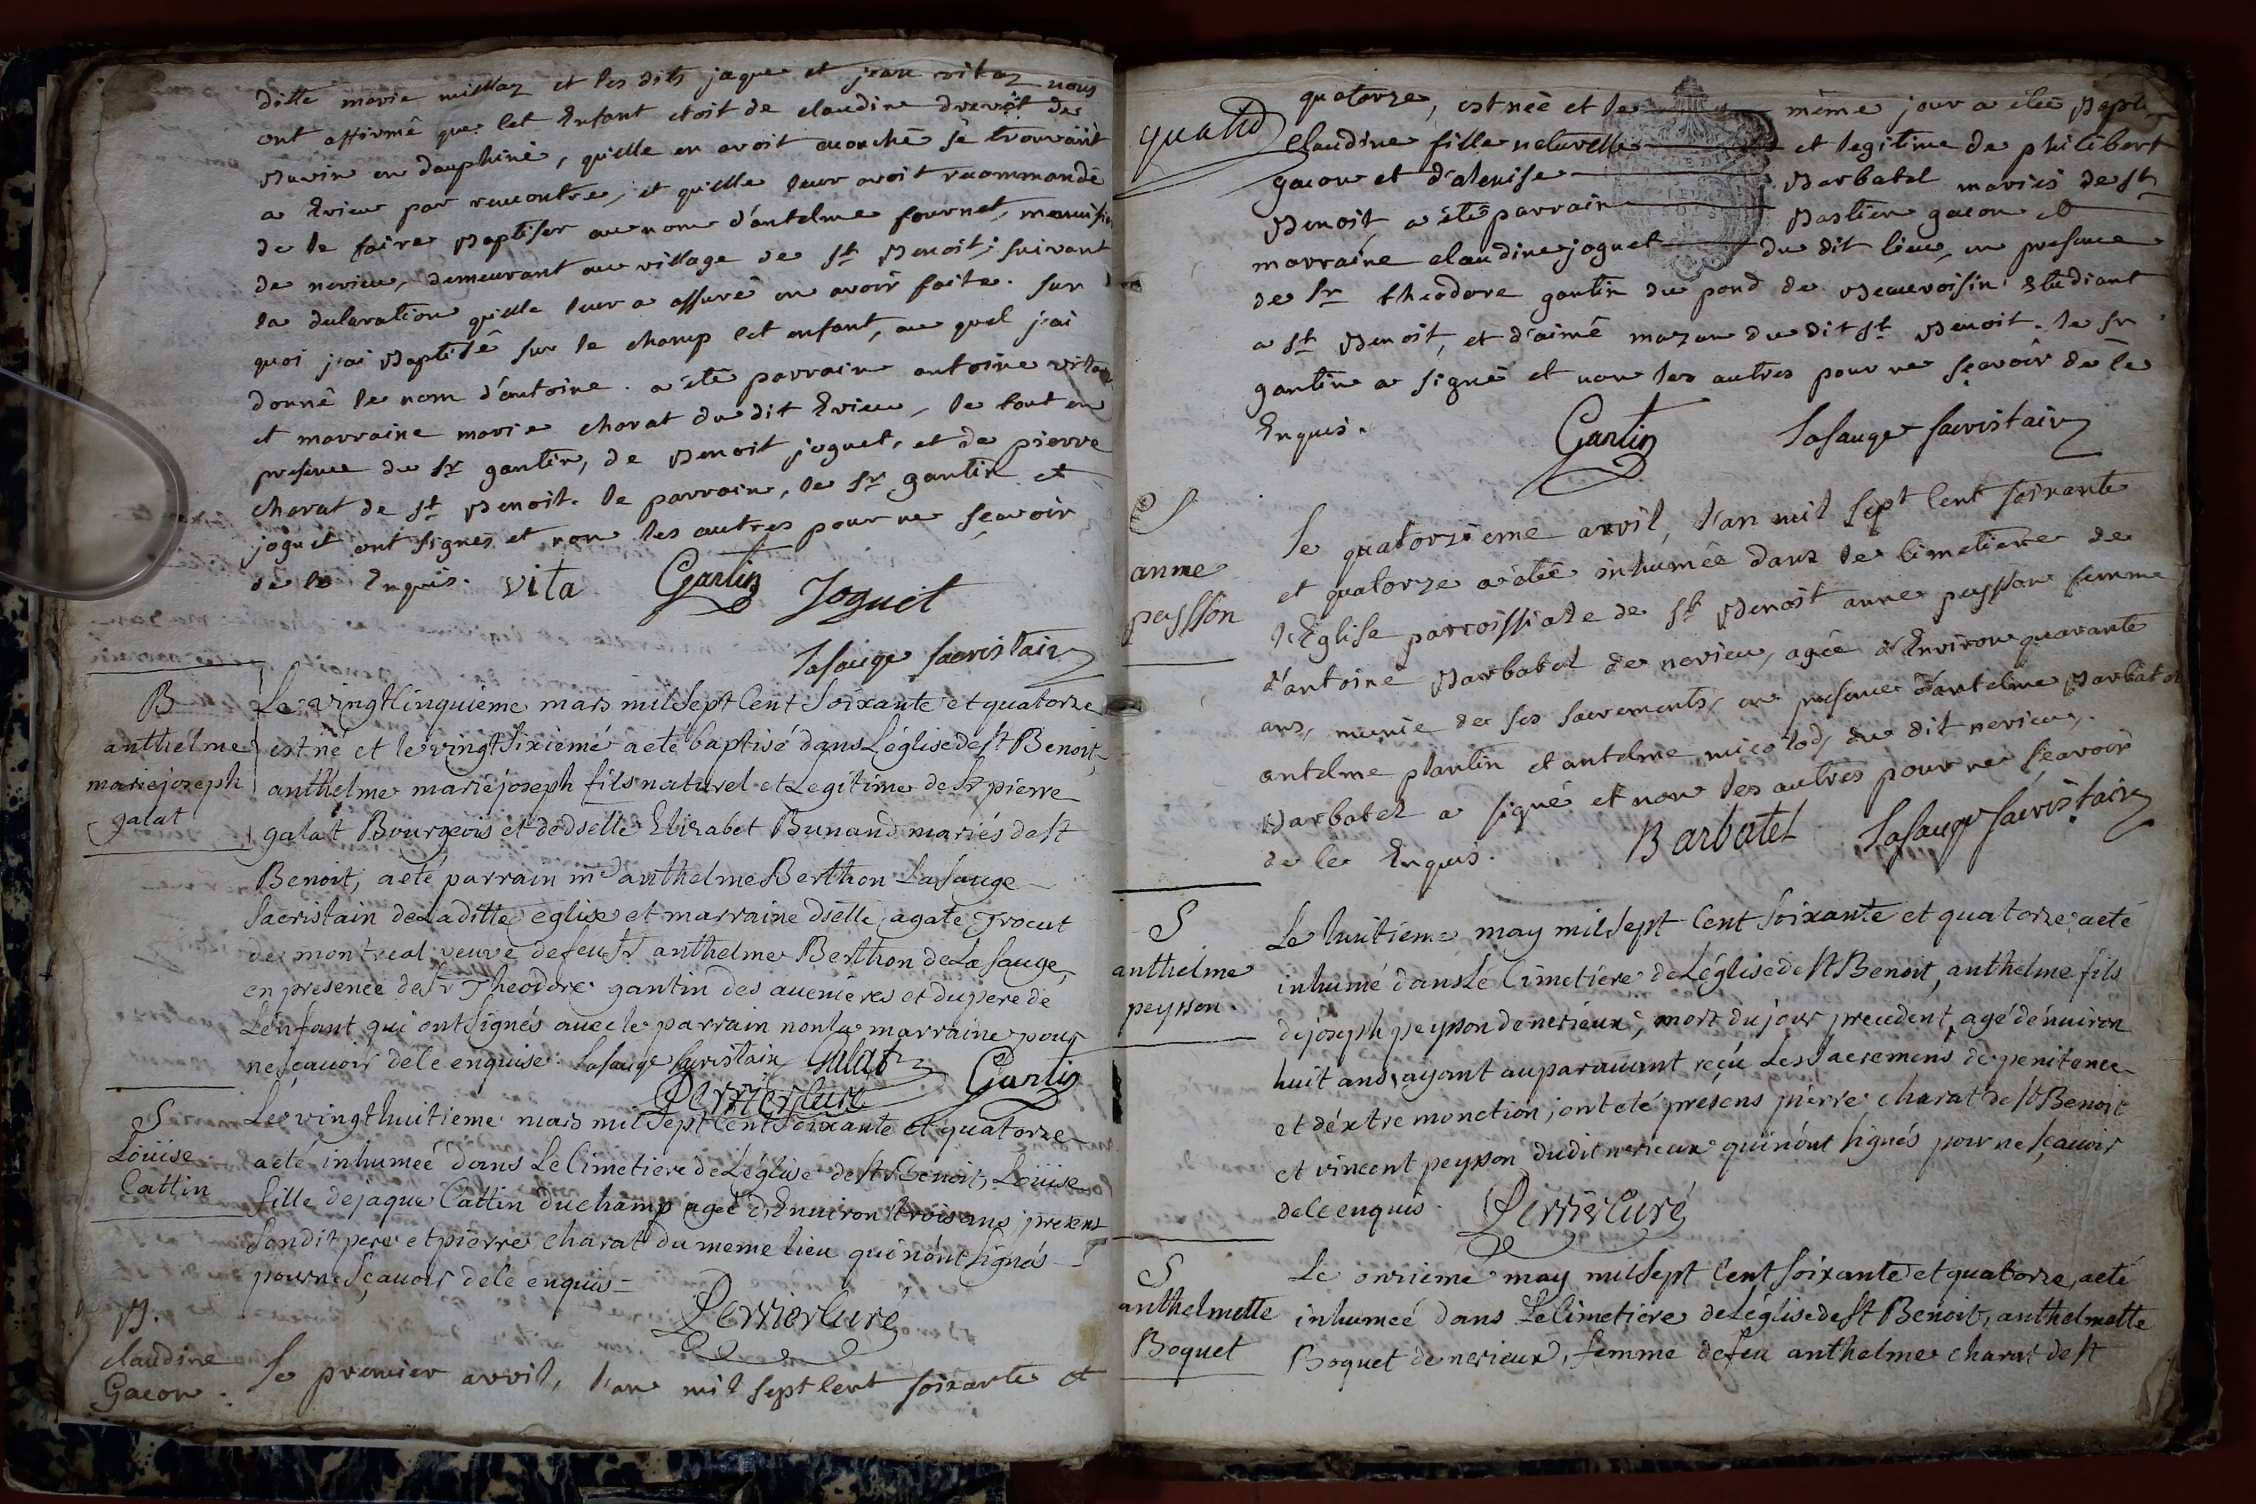 ditte marie millaz et les dits jaque et jean vitaz nous
ont affirmé que cet Enfant etoit de claudine drevêt de
Buvin en dauphiné, qu'elle en avoit acouché se trouvant
a Evieu par rencontre, et qu'elle leur avoit recommandé
de le faire Baptiser au nom d'antelme fournet,
de nerieu, demeurant au village de St Benoit; suivant
la declaration qu'elle leur a assuré en avoir faite. sur
quoi j'ai Baptisé sur le champ cet enfant, au quel j'ai
donné le nom d'antoine. a été parrain antoine vitaz
et marraine marie charat du dit Evieu, le tout en
presence du Sr gantin, de Benoit joguet, et de pierre
charat de St Benoit. le parrain, le Sr gantin et
joguet ont signés et non les autres pour ne sçavoir
de ce Enquis. vita Gantin Joguet
Lasauge sacristain
B
anthelme
marie joseph
galat
Le vingt Cinquieme mars mil Sept Cent Soixante et quatorze
est né et le vingt Sixieme a eté baptisé dans L'église de St Benoit,
anthelme marie joseph fils naturel et Legitime de Sr pierre
galat Bourgeois et de dselle Elizabet Bunand mariés de St
Benoit, a eté parrain mr anthelme Berthon La Sauge
Sacristain de La ditte eglise et marraine dselle agate Trocut
de montreal veuve de feu Sr anthelme Berthon de La Sauge,
en presence de Sr Theodore gantin des avenieres et du pere de
L'enfant qui ont Signés avec le parrain non la marraine pour
ne sçavoir de ce enquise. Lasauge sacristain Galat Gantin
Perrier Curé
S
Loüise
Cattin
Le vingt huitieme mars mil Sept Cent Soixante et quatorze
a eté inhumeé dans Le Cimetiere de L'église de St Benoit, Loüise
fille de jaque Cattin du champ ageé d'Environ trois ans presens
Son dit pere et pierre charat du meme lieu qui n'ont Signés
pour ne Sçavoir de ce enquis -
Perrier Curé
B.
claudine
Gacon.
Le premier avril, l'an mil sept cent soixante et
quatorze, est née et le même jour a été Bapti-
claudine fille naturelle et legitime de philibert
gacon et d'alenise Barbatel mariés de St
Benoit, a été parrain Bastien gacon et
marraine claudine joguet du dit lieu, en presence
de Sr theodore gantin du pond de Beauvoisin étudiant
a St Benoit, et d'aimé mazan du dit St Benoit. le Sr
gantin a signé et non les autres pour ne sçavoir de ce
Enquis. Gantin Lasauge sacristain
S
anne
peysson
Le quatorzieme avril, l'an mil Sept Cent soixante
et quatorze a été inhumée dans le cimetiere de
l'Eglise parroissiale de St Benoit anne peysson femme
d'antoine Barbatel de nerieu, agée d'Environ quarante
ans, munie de ses sacrements, en presence d'antelme Barbatel
antelme plantin et antelme micolod, du dit nerieu,
Barbatel a signé et non les autres pour ne sçavoir
de ce Enquis. Barbatel Lasauge sacristain
S
anthelme
peysson.
Le huitieme may mil Sept Cent Soixante et quatorze a eté
inhumé dans Le Cimetiere de L'église de St Benoit, anthelme fils
de joseph peysson de nerieux, mort du jour precedent, agé d'environ
huit ans, ayant auparavant reçu Les Sacremens de penitence
et d'extremonction; ont eté presens pierre charat de St Benoit
et vincent peysson du dit nerieux qui n'ont signés pour ne sçavoir
de ce enquis. Perrier Curé
S
anthelmette
Boquet
Le onzieme may mil Sept Cent Soixante et quatorze, a eté
inhumeé dans Le Cimetiere de L'église de St Benoit, anthelmette
Boquet de nerieux, femme de feu anthelme charat de St